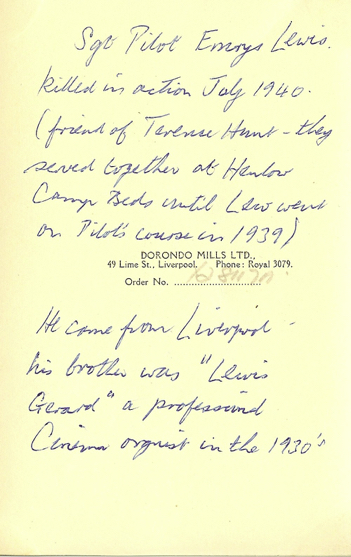 Sgt Pilot Emrys Lewis.
killed in action July 1940.
(friend of Terense Hunt - they
served together at Henlow
Camp Beds until Lew went
on Pilot's course in 1939)
DORONDO MILLS LTD.,
49 Lime St., Liverpool. Phone: Royal 3079.
Order No. ..............................
He came from Liverpool -
his brother was "Lewis
Gerard" a professional
Cinema organist in the 1930's